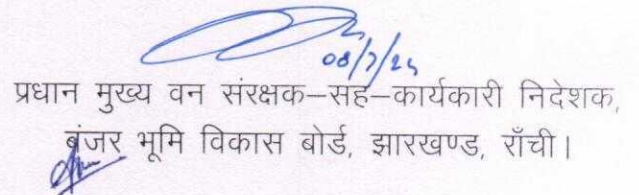 08/7/25
प्रधान मुख्य वन संरक्षक–सह–कार्यकारी निदेशक,
बंजर भूमि विकास बोर्ड, झारखण्ड, राँची।